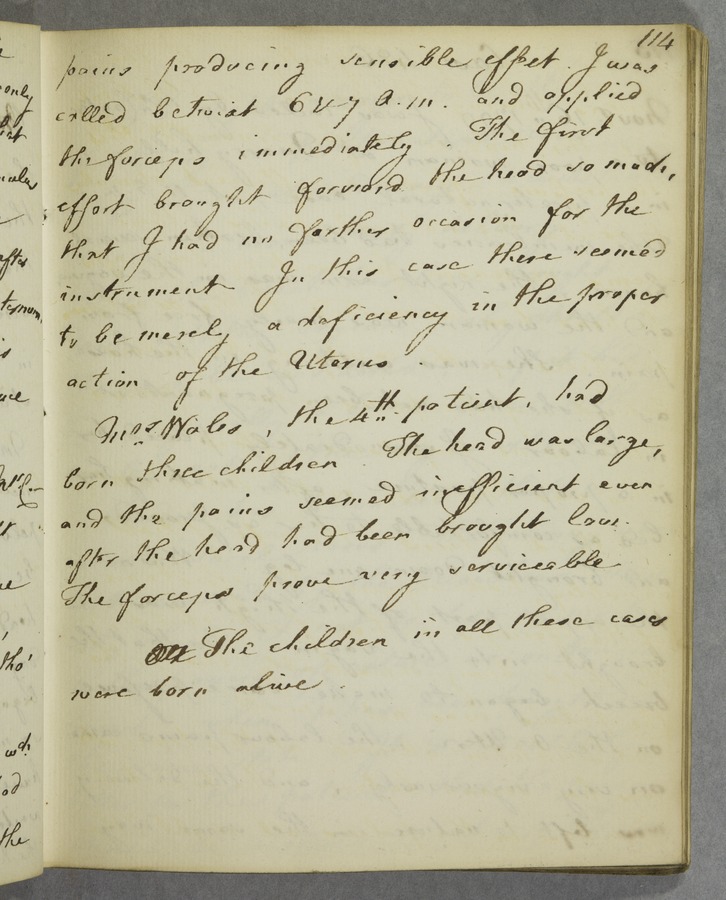 114
pains producing sensible effect. I was
called betwixt 6 & 7 A.m. and applied
the forceps immediately. The first
effort brought forward the head so much,
that I had no farther occasion for the
instrument In this case there seemed
to be merely a deficiency in the proper
action of the Uterus.
Mrs Wales, the 4th patient, had
born three children The head was large,
and the pains seemed inefficient even
after the head had been brought low.
The forceps prove very serviceable
The children in all these cases
were born alive.
only
after
tho'
wch
the